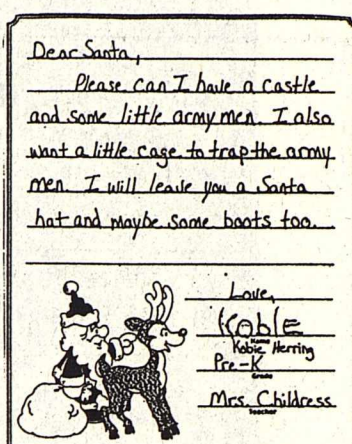 Dear Santa,
Please can I have a castle
and some little army men. I also
want a little cage to trap the army
men. I will leave you a Santa
hat and maybe some boots too.
Love,
KobIE
Name
Kobie Herring
Pre-K
Grade
Mrs. Childress
Teacher